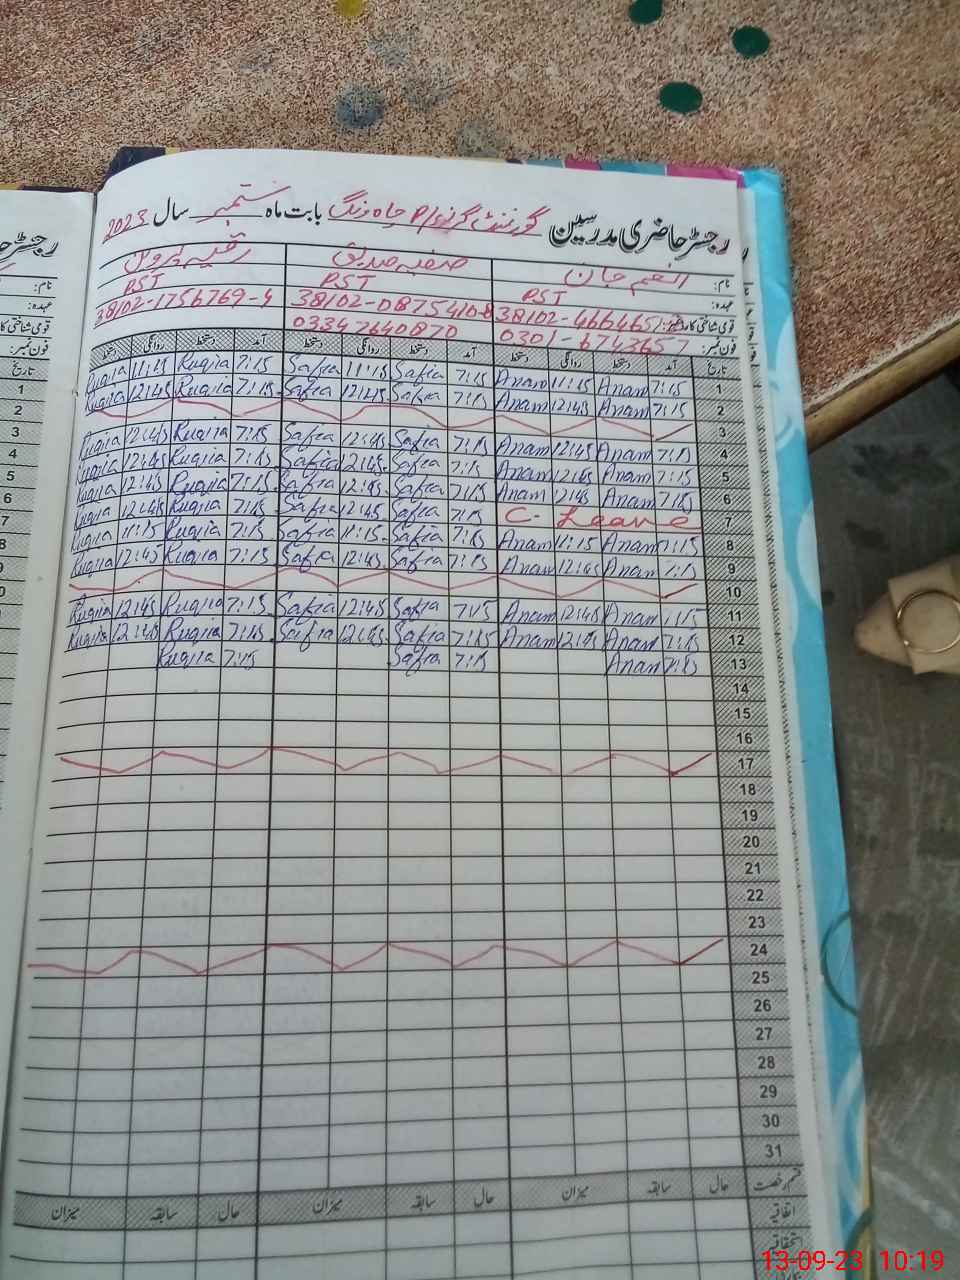 رجسٹر حاضری مدرسین گورنمنٹ گرلز P/ چاہ ونگ بابت ماہ ستمبر سال 2023
نام: انعم جان صفیہ صدیق رقیہ پروین
عہدہ: PST PST PST
38102-0875410-8 38102-1756769-4
فون نمبر: 0301-6743657 03347640870
تاریخ آمد دستخط روانگی دستخط آمد دستخط روانگی دستخط آمد دستخط روانگی دستخط
1 7:15 Anam 11:15 Anam 7:15 Safia 11:15 Safia 7:15 Ruqia 11:15 Ruqia
2 7:15 Anam 12:45 Anam 7:15 Safia 12:45 Safia 7:15 Ruqia 12:45 Ruqia
3
4 7:15 Anam 12:45 Anam 7:15 Safia 12:45 Safia 7:15 Ruqia 12:45 Ruqia
5 7:15 Anam 12:45 Anam 7:15 Safia 12:45 Safia 7:15 Ruqia 12:45 Ruqia
6 7:15 Anam 12:45 Anam 7:15 Safia 12:45 Safia 7:15 Ruqia 12:45 Ruqia
7 C- Leave 7:15 Safia 12:45 Safia 7:15 Ruqia 12:45 Ruqia
8 7:15 Anam 11:15 Anam 7:15 Safia 11:15 Safia 7:15 Ruqia 11:15 Ruqia
9 7:15 Anam 12:45 Anam 7:15 Safia 12:45 Safia 7:15 Ruqia 12:45 Ruqia
10
11 7:15 Anam 12:45 Anam 7:15 Safia 12:45 Safia 7:15 Ruqia 12:45 Ruqia
12 7:15 Anam 12:45 Anam 7:15 Safia 12:45 Safia 7:15 Ruqia 12:45 Ruqia
13 7:15 Anam 7:15 Safia 7:15 Ruqia
14
15
16
17
18
19
20
21
22
23
24
25
26
27
28
29
30
31
قسم رخصت حال سابقہ میزان حال سابقہ میزان حال سابقہ میزان
اتفاقیہ
استحقاقیہ
13-09-23 10:19